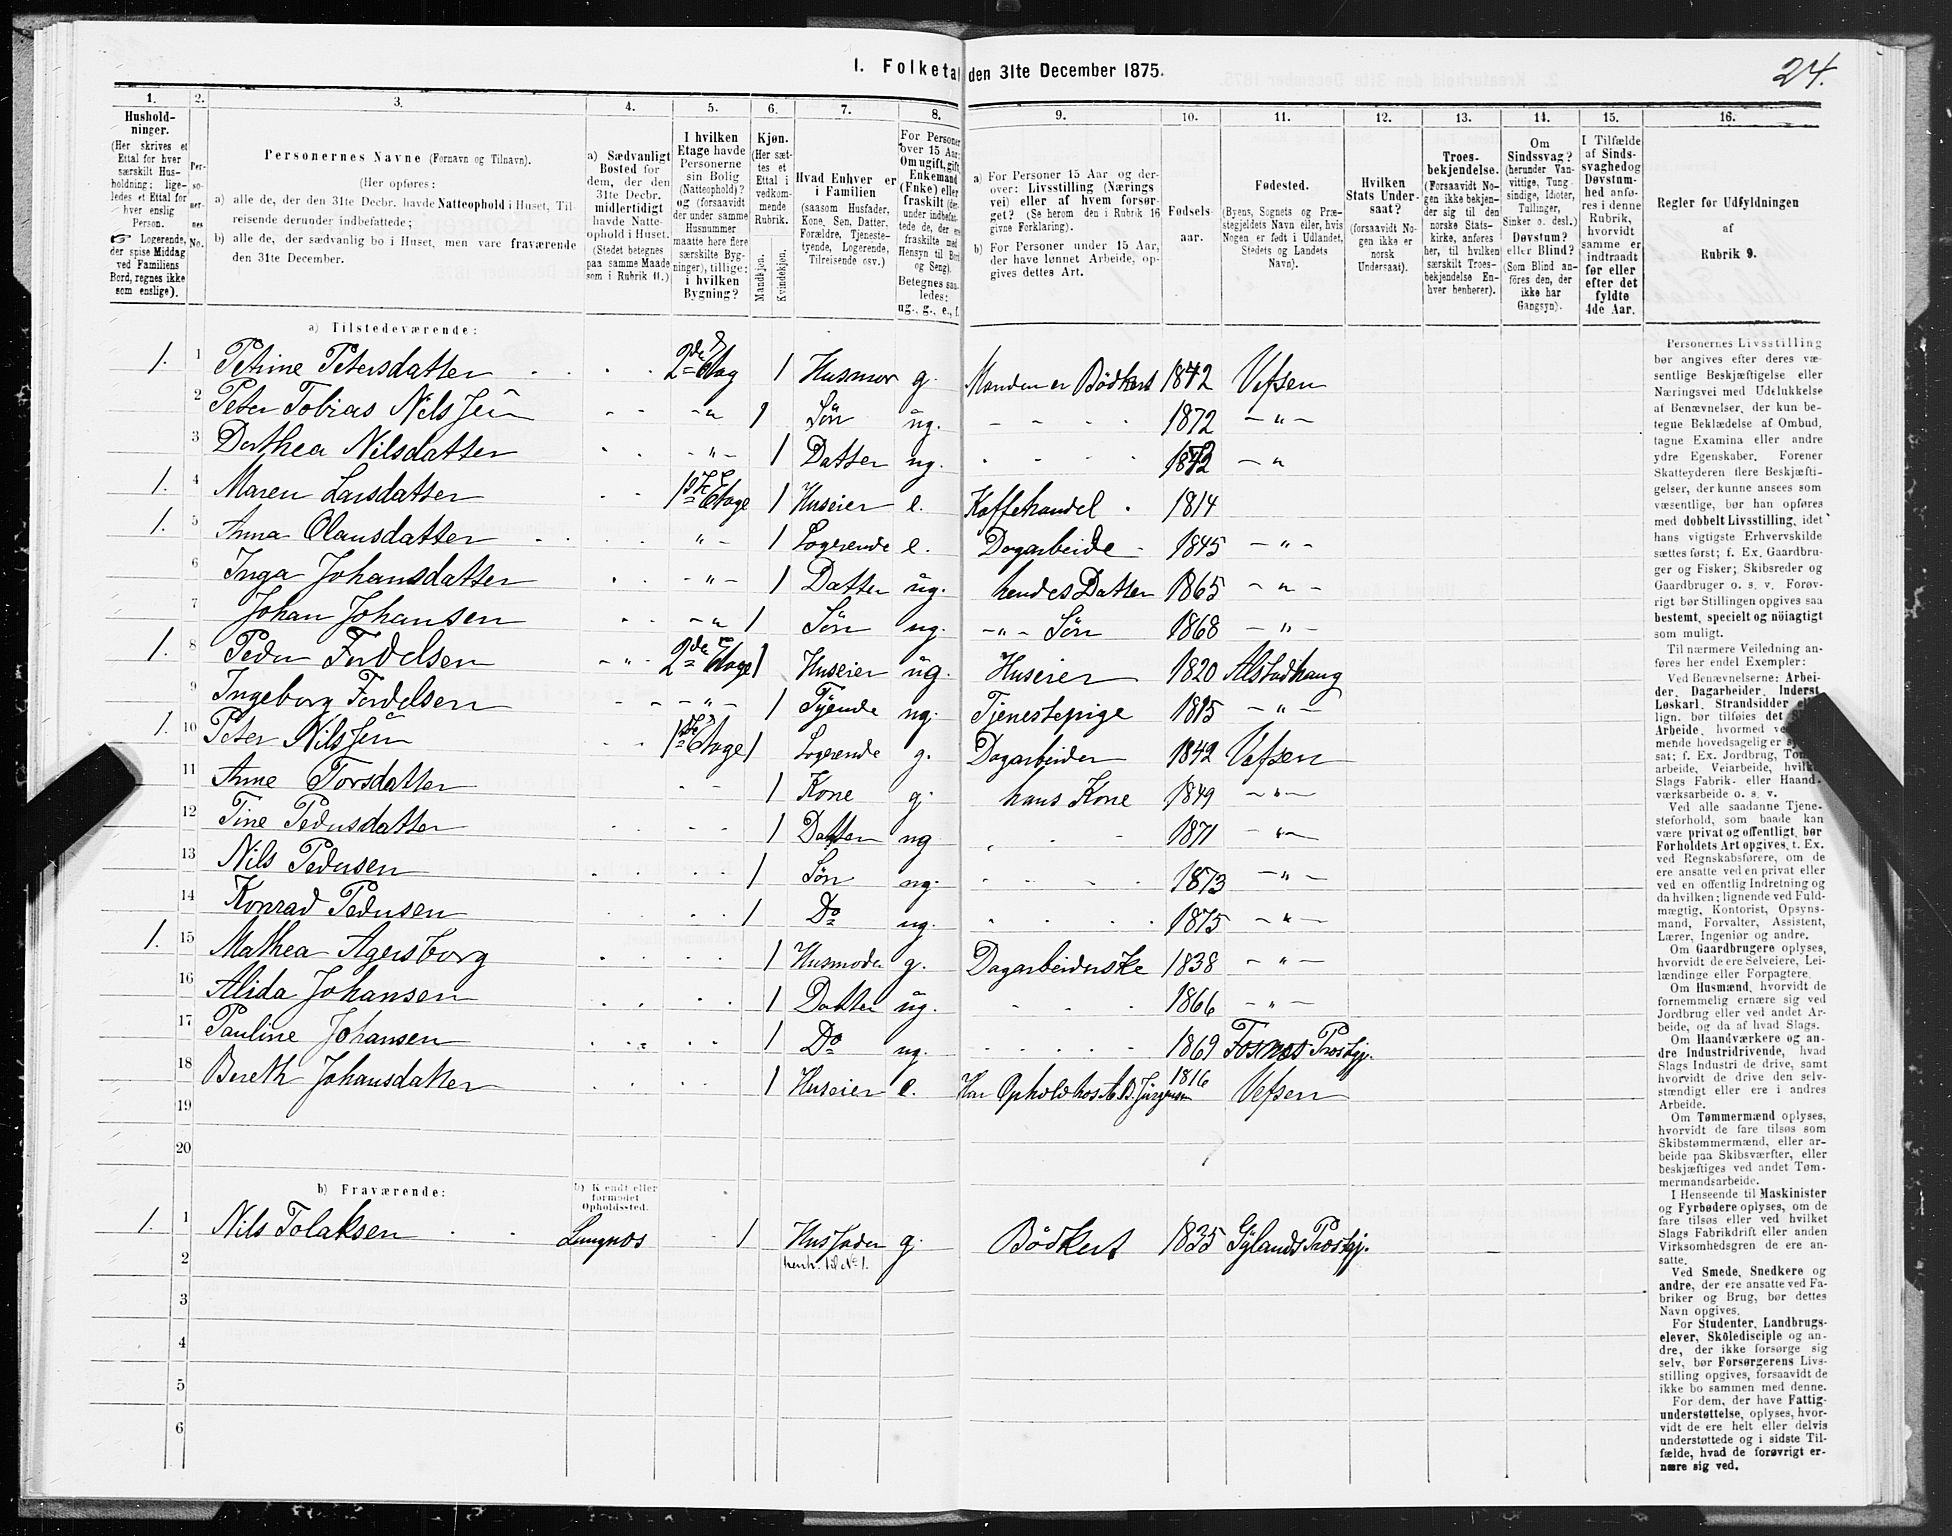 24.
I. Folketal den 31te December 1875.
1. 2. 3. 4. 5. 6. 7. 8. 9. 10. 11. 12. 13. 14. 15. 16.
Hushold-
ninger.
(Her skrives et
Ettal for hver
særskilt Hus-
holdning; lige-
ledes et Ettal for
hver enslig
Person.
☞ Logerende,
der spise Middag
ved Familiens
Bord, regnes ikke
som enslige).
Per-
so-
ner-
nes
No.
Personernes Navne (Fornavn og Tilnavn).
(Her opføres:
a) alle de, der den 31te Decbr. havde Natteophold i Huset, Til-
reisende derunder indbefattede;
b) alle de, der sædvanlig bo i Huset, men vare fraværende
den 31te December.
a) Sædvanligt
Bosted for
dem, der den
31te Decbr.
midlertidigt
havde Natte-
ophold i Huset.
(Stedet betegnes
paa samme Maade
som i Rubrik 11.)
I hvilken
Etage havde
Personerne
sin Bolig
(Natteophold)?
og (forsaavidt
der under samme
Husnummer
maatte høre flere
særskilte Byg-
ninger), tillige:
i hvilken
Bygning?
Kjøn.
(Her sæt-
tes et
Ettal i
vedkom-
mende
Rubrik.
Mandkjøn.
Kvindekjøn.
Hvad Enhver er
i Familien
(saasom Husfader,
Kone, Søn, Datter,
Forældre, Tjeneste-
tyende, Logerende,
Tilreisende osv.)
For Personer
over 15 Aar:
Om ugift, gift,
Enkemand
(Enke) eller
fraskilt (der-
under indbefat-
tede de, der ere
fraskilte med
Hensyn til Bord
og Seng).
Betegnes saa-
ledes:
ug., g., e., f.
a) For Personer 15 Aar og der-
over: Livsstilling (Nærings
vei) eller af hvem forsør-
get? (Se herom den i Rubrik 16
givne Forklaring).
b) For Personer under 15 Aar,
der have lønnet Arbeide, op-
gives dettes Art.
Fødsels-
aar.
Fødested.
(Byens, Sognets og Præ-
stegjeldets Navn eller, hvis
Nogen er født i Udlandet,
Stedets og Landets
Navn).
Hvilken
Stats Under-
saat?
(forsaavidt No-
gen ikke er
norsk
Undersaat).
Troes-
bekjendelse.
(Forsaavidt No-
gen ikke bekjen-
der sig til den
norske Stats-
kirke, anføres
her, til hvilken
særskilt Troes-
bekjendelse En-
hver henhører).
Om
Sindssvag?
(herunder Van-
vittige, Tung-
sindige, Idioter,
Tullinger,
Sinker o. desl.)
Døvstum?
eller Blind?
(Som Blind an-
føres den, der
ikke har
Gangsyn).
I Tilfælde
af Sinds-
svaghed og
Døvstum-
hed anfø-
res i denne
Rubrik,
hvorvidt
samme er
indtraadt
før eller
efter det
fyldte
4de Aar.
Regler for Udfyldningen
af
Rubrik 9.
a) Tilstedeværende:
1. 1 Petrine Petersdatter 2den Etag 1 Husmor g. Manden er Bödkert 1842 Vefsen
2 Peter Tobias Nilssen - " 1 Sön ug. 1872 - " -
3 Dorthea Nilsdatter - " - 1 Datter ug. - "
1. 4 Maren Larsdatter 1ste Etage 1 Huseier e. Kaffehandel 1814
1. 5 Anna Olausdatter " - 1 Logerende e. Dagarbeide 1845 - " -
6 Inga Johansdatter - " - 1 Datter ug. hendes Datter 1865 - " -
7 Johan Johansen - " 1 Sön ug. - " - Sön 1868 - " -
1. 8 Peder Fordelsen - " - 2den Etage 1 Huseier ug. Huseier 1820 Alstadhaug
9 Ingeborg Fordelsen - " - 1 Tyende ug. Tjenestepige 1815 - " -
1. 10 Peter Nilssen 1ste Etage 1 Logerende g. Dagarbeider 1842 Vefsen
11 Anne Torsdatter 1 Kone g. hans Kone 1849 - " -
12 Tine Pedersdatter 1 Datter ug 1871 - " -
13 Nils Pedersen 1 Sön ug. 1873 - " -
14 Konrad Pedersen 1 Do ug. 1875 - " -
1. 15 Mathea Agersborg 1 Husmoder g. Dagarbeiderske 1838 - " -
16 Alida Johansen 1 Datter ug. 1866 - " -
17 Pauline Johansen 1 Do ug. 1869 Fosnes Prestgj.
18 Bereth Johansdatter 1 Huseier e. Har Ophold hos 1816 Vefsen
19
20
b) Fraværende:
b) Kjendt eller
formodet
Opholdssted.
1. 1 Nils Tolaksen Lungnos 1 Husfader g. Bödkert 1835 Gylands Prestgj.
henh. til No 1.
2
3
4
5
6
Personernes Livsstilling
bør angives efter deres væ-
sentlige Beskjæftigelse eller
Næringsvei med Udelukkelse
af Benævnelser, der kun be-
tegne Beklædelse af Ombud,
tagne Examina eller andre
ydre Egenskaber. Forener
Skatteyderen flere Beskjæfti-
gelser, der kunne ansees som
væsentlige, bør han opføres
med dobbelt Livsstilling, idet
hans vigtigste Erhvervskilde
sættes først; f. Ex. Gaardbru-
ger og Fisker; Skibsreder og
Gaardbruger o. s. v. Forøv-
rigt bør Stillingen opgives saa
bestemt, specielt og nöiagtigt
som muligt.
Til nærmere Veiledning an-
føres her endel Exempler:
Ved Benævnelserne: Arbei-
der, Dagarbeider, Inderst,
Løskarl, Strandsidder
lign. bør tilføies det
Arbeide, hvormed
mende hovedsagelig er
sat; f. Ex. Jordbrug,
arbeide, Veiarbeide,
Slags Fabrik- eller Haand-
værksarbeide o. s. v.
Ved alle saadanne Tjene-
steforhold, som baade kan
være privat og offentligt, bør
Forholdets Art opgives, f. Ex.
ved Regnskabsførere, om de
ere ansatte ved en privat eller
ved en offentlig Indretning og
da hvilken; lignende ved Fuld-
mægtig, Kontorist, Opsyns-
mand, Forvalter, Assistent,
Lærer, Ingeniør og andre.
Om Gaardbrugere oplyses,
hvorvidt de ere Selveiere, Lei-
lændinge eller Forpagtere.
Om Husmænd, hvorvidt de
fornemmelig ernære sig ved
Jordbrug eller ved andet Ar-
beide, og da af hvad Slags.
Om Haandværkere og an-
dre Industridrivende, hvad
Slags Industri de drive, samt
hvorvidt de drive den selv-
stændigt eller ere i andres
Arbeide.
Om Tømmermænd oplyses,
hvorvidt de fare tilsøs som
Skibstømmermænd, eller ar-
beide paa Skibsværfter, eller
beskjæftiges ved andet Tøm-
mermandsarbeide.
I Henseende til Maskinister
og Fyrbødere oplyses, om de
fare tilsøs eller ved hvilket
Slags Fabrikdrift eller anden
Virksomhedsgren de ere an-
satte.
Ved Smede, Snedkere og
andre, der ere ansatte ved Fa-
briker og Brug, bør dettes
Navn opgives.
For Studenter, Landbrugs-
elever, Skoledisciple og an-
dre, der ikke forsørge sig
selv, bør Forsørgerens Livs-
stilling opgives, forsaavidt de
ikke bo sammen med denne.
For dem, der have Fattig-
understøttelse, oplyses, hvor-
vidt de ere helt eller delvis
understøttede og i sidste Til-
fælde, hvad de forøvrigt er-
nære sig ved.